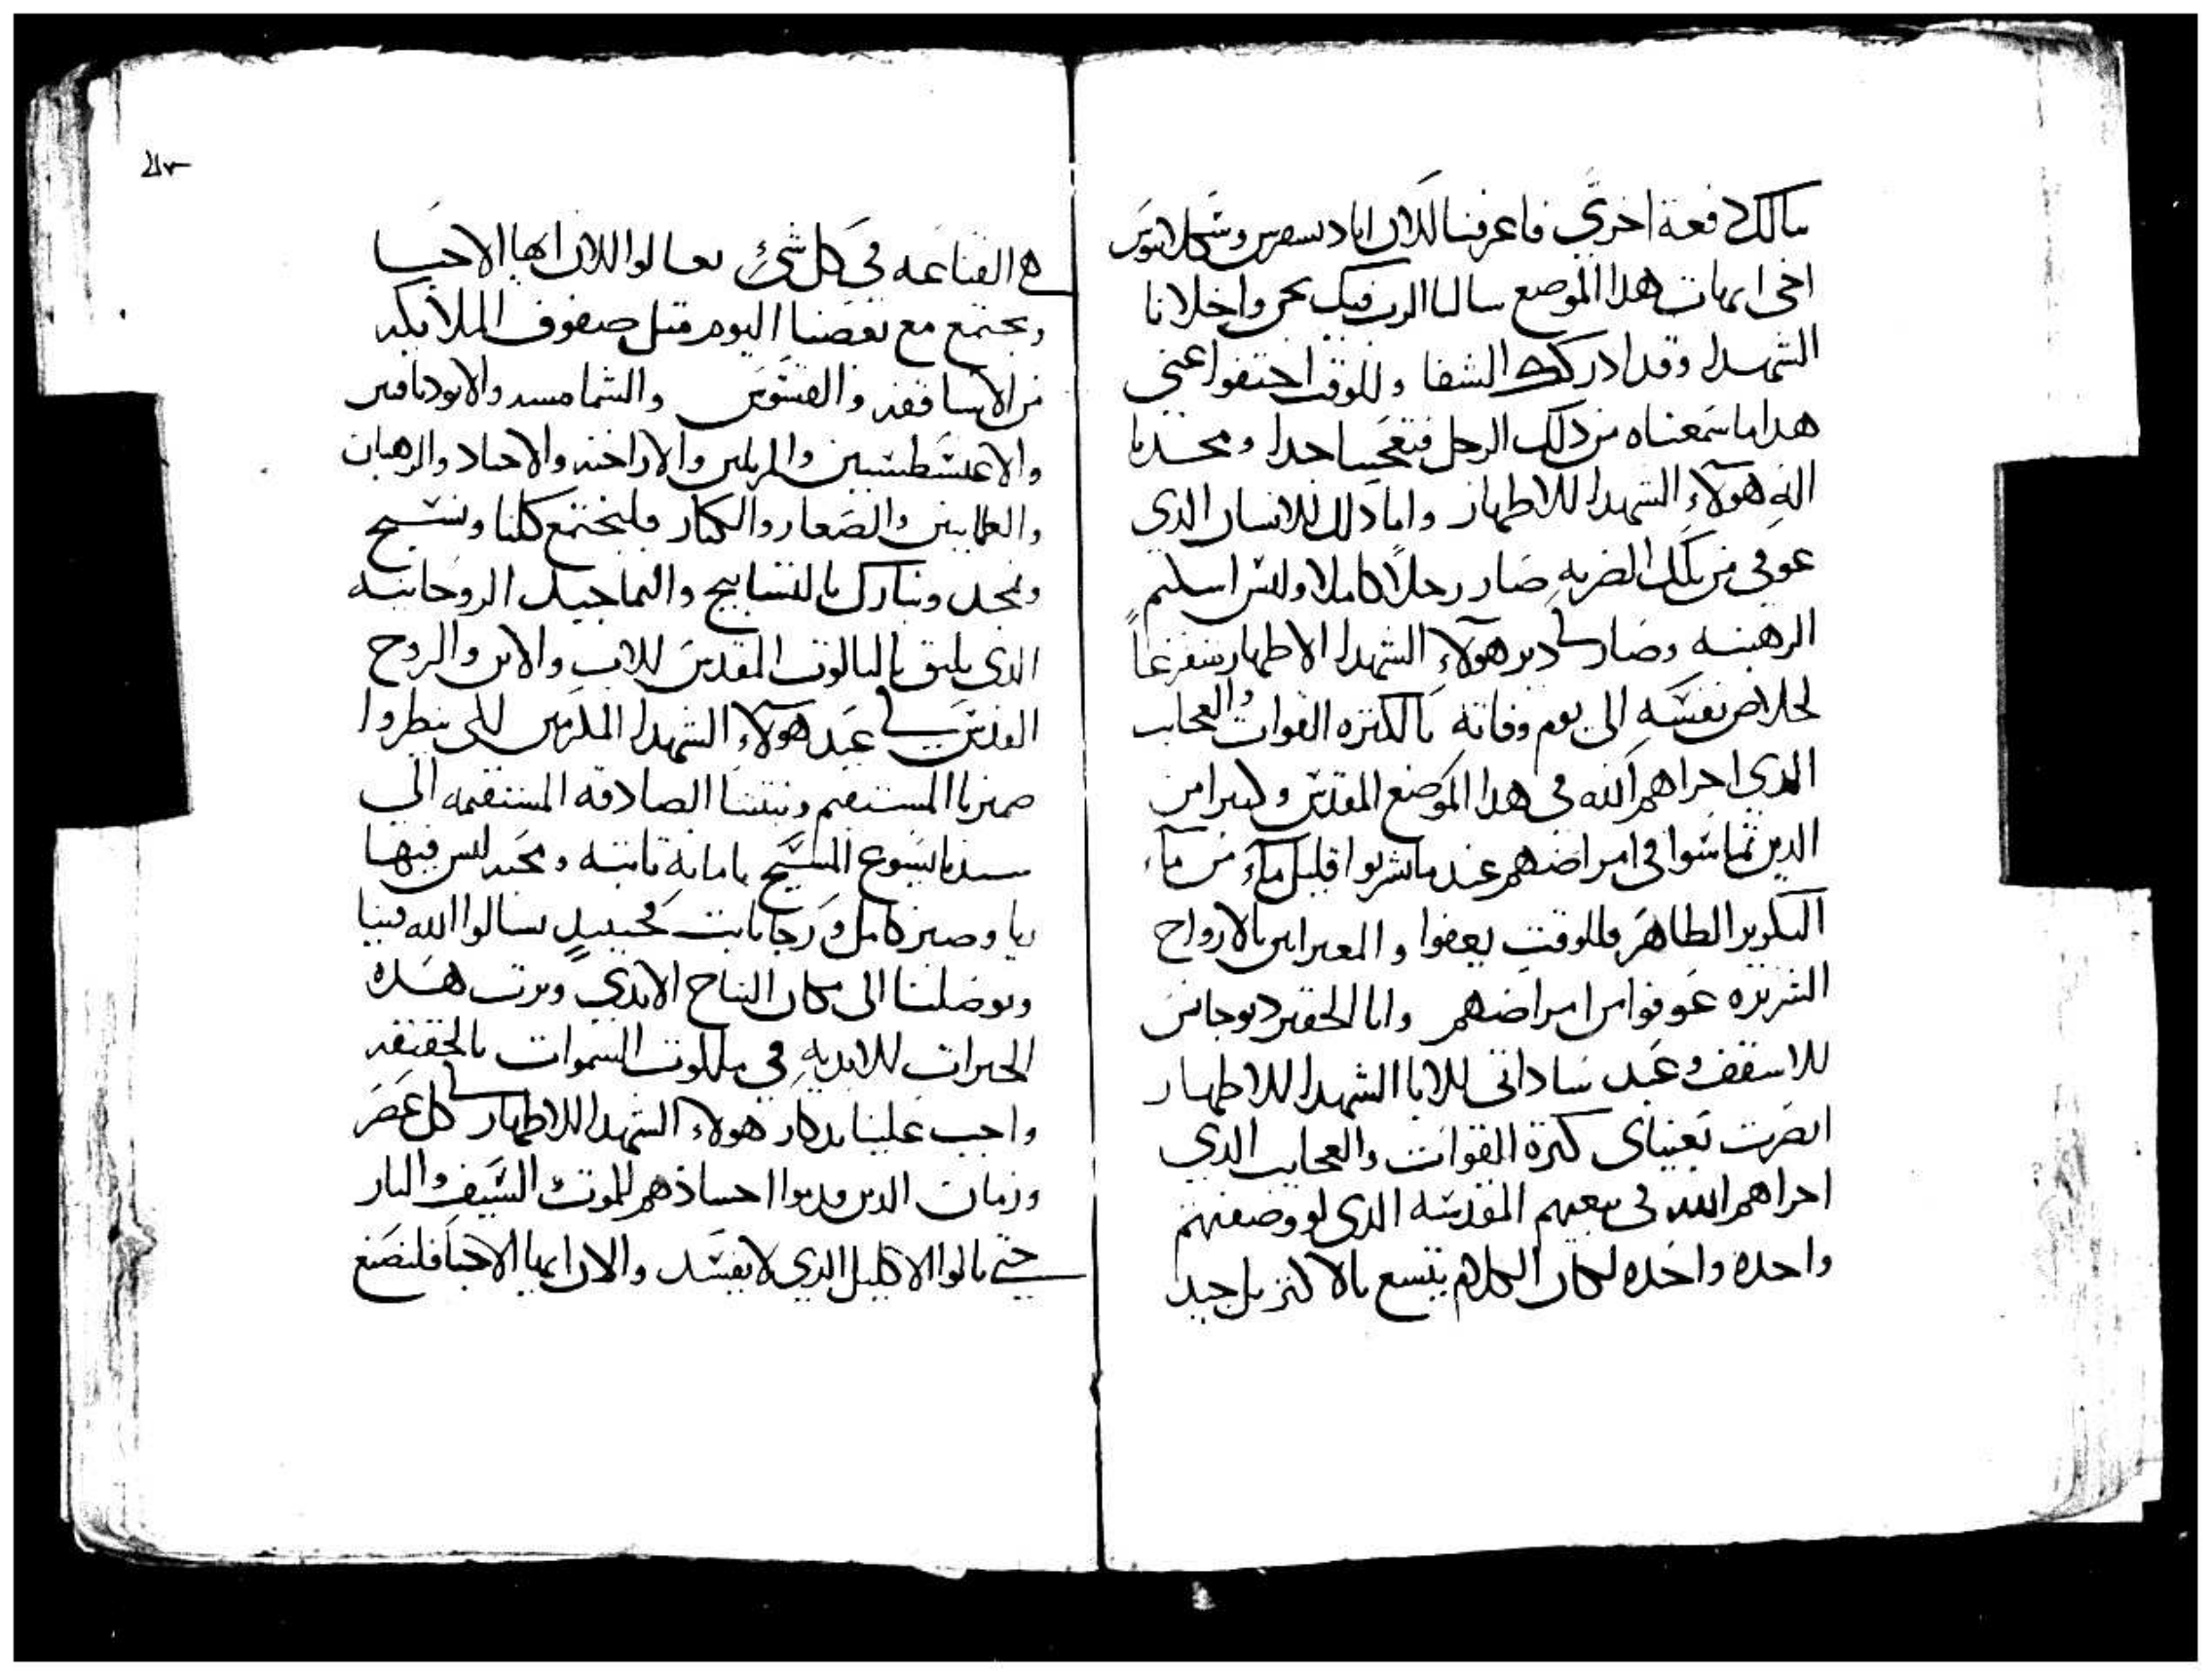 مالك دفعة اخري فاعرفنا الان انا ديسقرس وسكلابيوس
اخي ايهات هدا الموضع سالنا الرب فيك نحن واخلانا
الشهدا وقد ادركك الشفا وللوقت اختفوا عني
هدا ما سمعناه من دلك الرجل فتعجبنا جدا ومجدنا
اله هولاء الشهدا الاطهار واما دلك الانسان الدي
عوفي من تلك الضربه صار رجلا كاملا ولبس اسكيم
الرهبنه وصار في دير هولاء الشهدا الاطهار متفرغا
لخلاص نفسه الى يوم وفاته يالكتره القوات والعجايب
الدي اجراهم الله في هدا الموضع المقدس وكتيرا من
الدين تماسوا في امراضهم عند ما شربوا قليل ماء من ماء
الطاهر فللوقت يعفوا والمعترايين بالارواح
الشريره عوفوا من امراضهم وانا الحقير ديوجانس
الاسقف وعبد ساداتي الابا الشهدا الاطهار
ابصرت بعيناي كترة القوات والعجايب الدي
اجراهم الله في بيعتهم المقدسه الدي لو وصفتهم
واحده واحده لكان الكلام يتسع بالاكتر بل جيد
هي القناعه في كل شيء تعالوا الان ايها الاحبا
ونجتمع مع بعضنا اليوم مثل صفوف الملايكه
من الاساقفه والقسوس والشمامسه والابودياقنين
والاغنسطسيين والمرتلين والاراخنه والاحناد والرهبان
والعلمانيين والصغار والكبار فلنجتمع كلنا ونسبح
ونمجد ونبارك بالتسابيح والتماجيد الروحانيه
الدي يليق بالتالوت المقدس الاب والابن والروح
القدس في عيد هولاء الشهدا المكرمين لكي ينظروا
ضميرنا المستقيم ونيتنا الصادقه المستقيمه الي
سيدنا يسوع المسيح بامانة تابته ومحبه ليس فيها
ريا وصبر كامل ورجا تابت فحينيد يسالوا الله فينا
ويوصلنا الى مكان النياح الابدي ونرت هده
الخيرات الابديه في ملكوت السموات بالحقيقه
واجب علينا تدكار هولاء الشهدا الاطهار في كل عصر
وزمان الدين قدموا اجسادهم للموت والسيف والنار
حتي نالوا الاكليل الدي لا يفسد والان ايها الاحبا فلنصنع